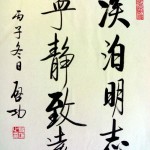 淡泊明志
宁静致远
丙子冬日
启功